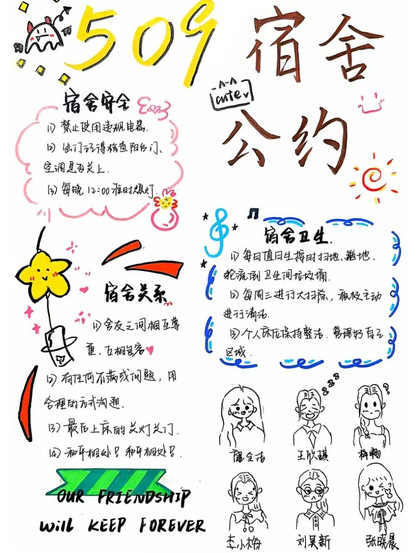 509 宿舍
公约
cute
宿舍安全
(1) 禁止使用违规电器.
(2) 出门记得检查阳台门、
空调是否关上.
(3) 每晚 12:00 准时熄灯.
宿舍卫生.
(1) 每日值日生按时扫地、拖地、
(2) 每周三进行大扫除,积极主动
进行清洁.
(3) 个人床位保持整洁、
区域.
宿舍关系
(1) 舍友之间相互尊
重,互相包容
(2) 有任何不满或问题,用
合理的方式沟通.
(3) 最后上床的关灯关门.
(4) 和平相处! 和平相处!
王欣祺
李小梅
刘昊新
张晓晨
OUR FRIENDSHIP
Will KEEP FOREVER